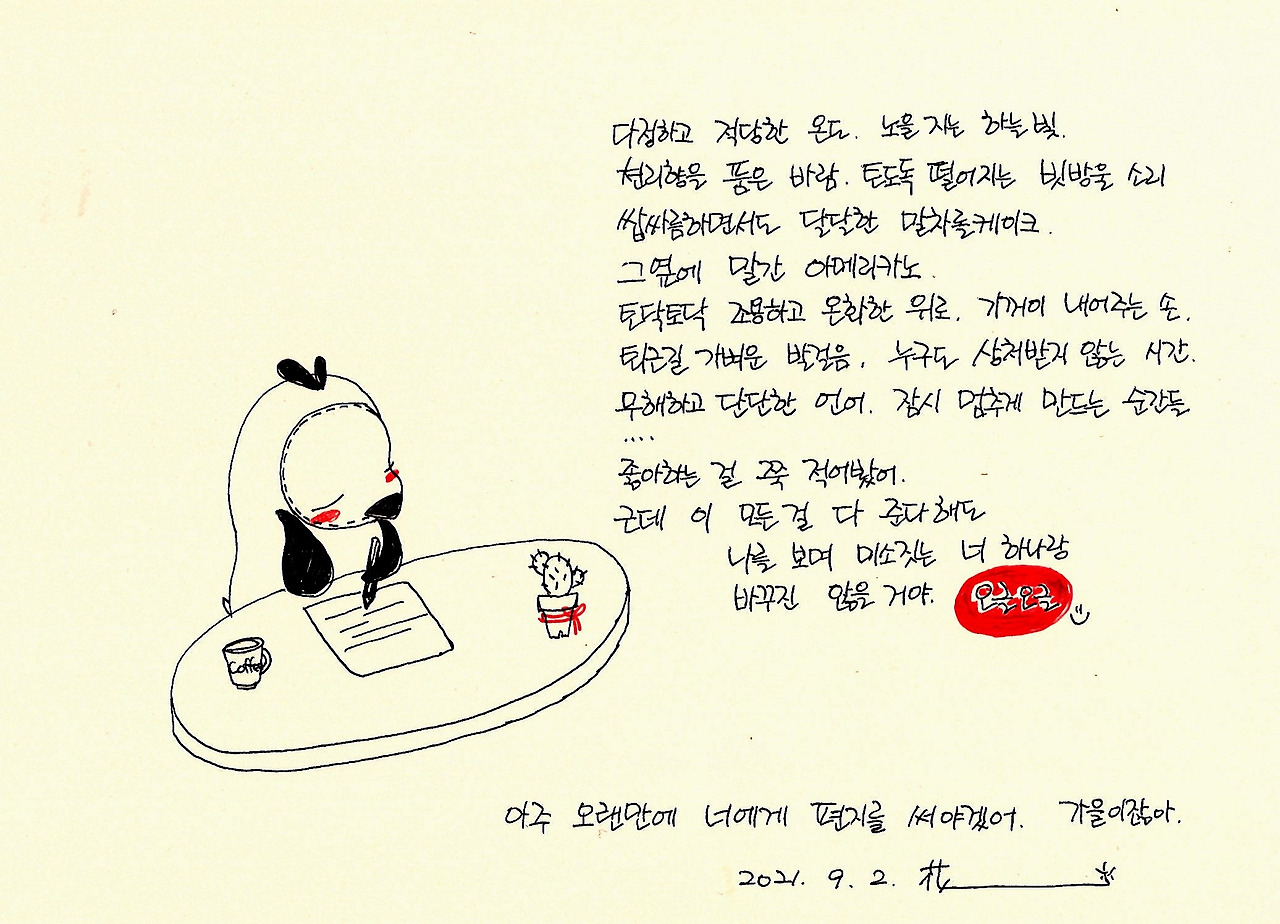 다정하고 적당한 온도. 노을 지는 하늘 빛.
천리향을 품은 바람. 토도독 떨어지는 빗방울 소리
쌉싸름하면서도 달달한 말차롤케이크.
그 옆에 말간 아메리카노.
토닥토닥 조용하고 온화한 위로. 기꺼이 내어주는 손.
퇴근길 가벼운 발걸음. 누구도 상처받지 않는 시간.
무해하고 단단한 언어. 잠시 멈추게 만드는 순간들
....
좋아하는 걸 쭉 적어봤어.
근데 이 모든걸 다 준다해도
나를 보며 미소짓는 너 하나랑
바꾸진 않을 거야. 오글오글
Coffee
아주 오랜만에 너에게 편지를 써야겠어. 가을이잖아.
2021. 9. 2.